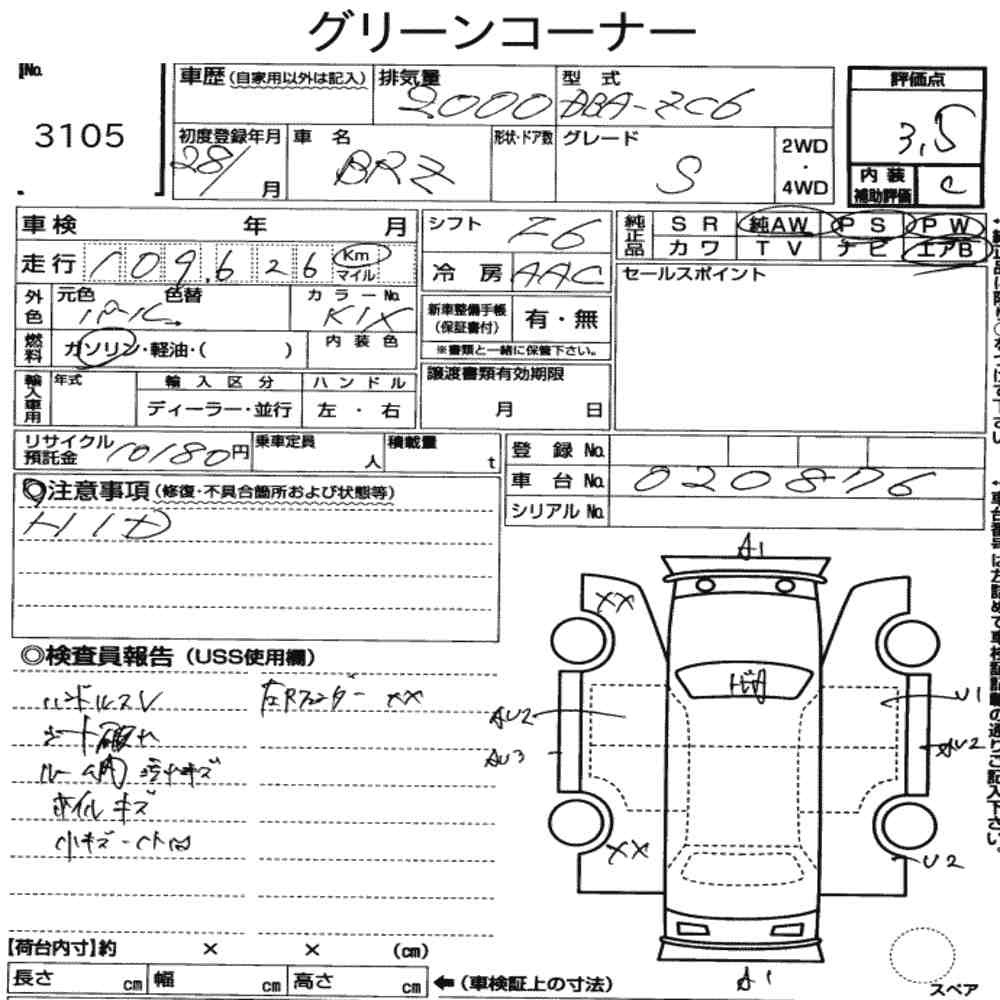 グリーンコーナー
No.
3105
車歴（自家用以外は記入）
排気量 2000
型式 DBA-ZC6
評価点 3.5
初度登録年月 28/ 月
車名 BRZ
形状・ドア数
グレード S
2WD・4WD
内装補助評価 C
車検 年 月
シフト Z6
純正品 SR 純AW PS PW
カワ TV ナビ エアB
走行 109,626 Km マイル
冷房 AAC
セールスポイント
外色 元色 パール 色替
カラーNo. K1X
新車整備手帳（保証書付） 有・無
※書類と一緒に保管下さい。
燃料 ガソリン・軽油・（ ）
内装色
輸入車用 年式 輸入区分 ハンドル
ディーラー・並行 左・右
譲渡書類有効期限
月 日
リサイクル預託金 10180円
乗車定員 人
積載量 t
登録No.
車台No. 020876
シリアルNo.
◎注意事項（修復・不具合箇所および状態等）
HID
◎検査員報告（USS使用欄）
ハンドルスレ
左Rフェンダー XX
シート破れ
ルーム内 汚れキズ
ホイルキズ
小キズ・凹
A1
XX
AU2
AU3
U1
AU2
XX
U2
A1
スペア
【荷台内寸】約 × × （cm）
長さ cm 幅 cm 高さ cm ←（車検証上の寸法）
↑車台番号は左詰めで車検証記載の通りご記入下さい。